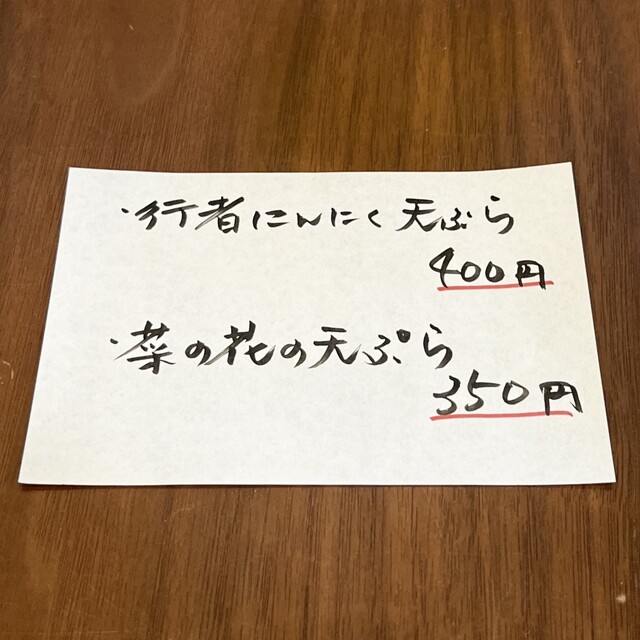 ・行者にんにく天ぷら
400円
・菜の花の天ぷら
350円